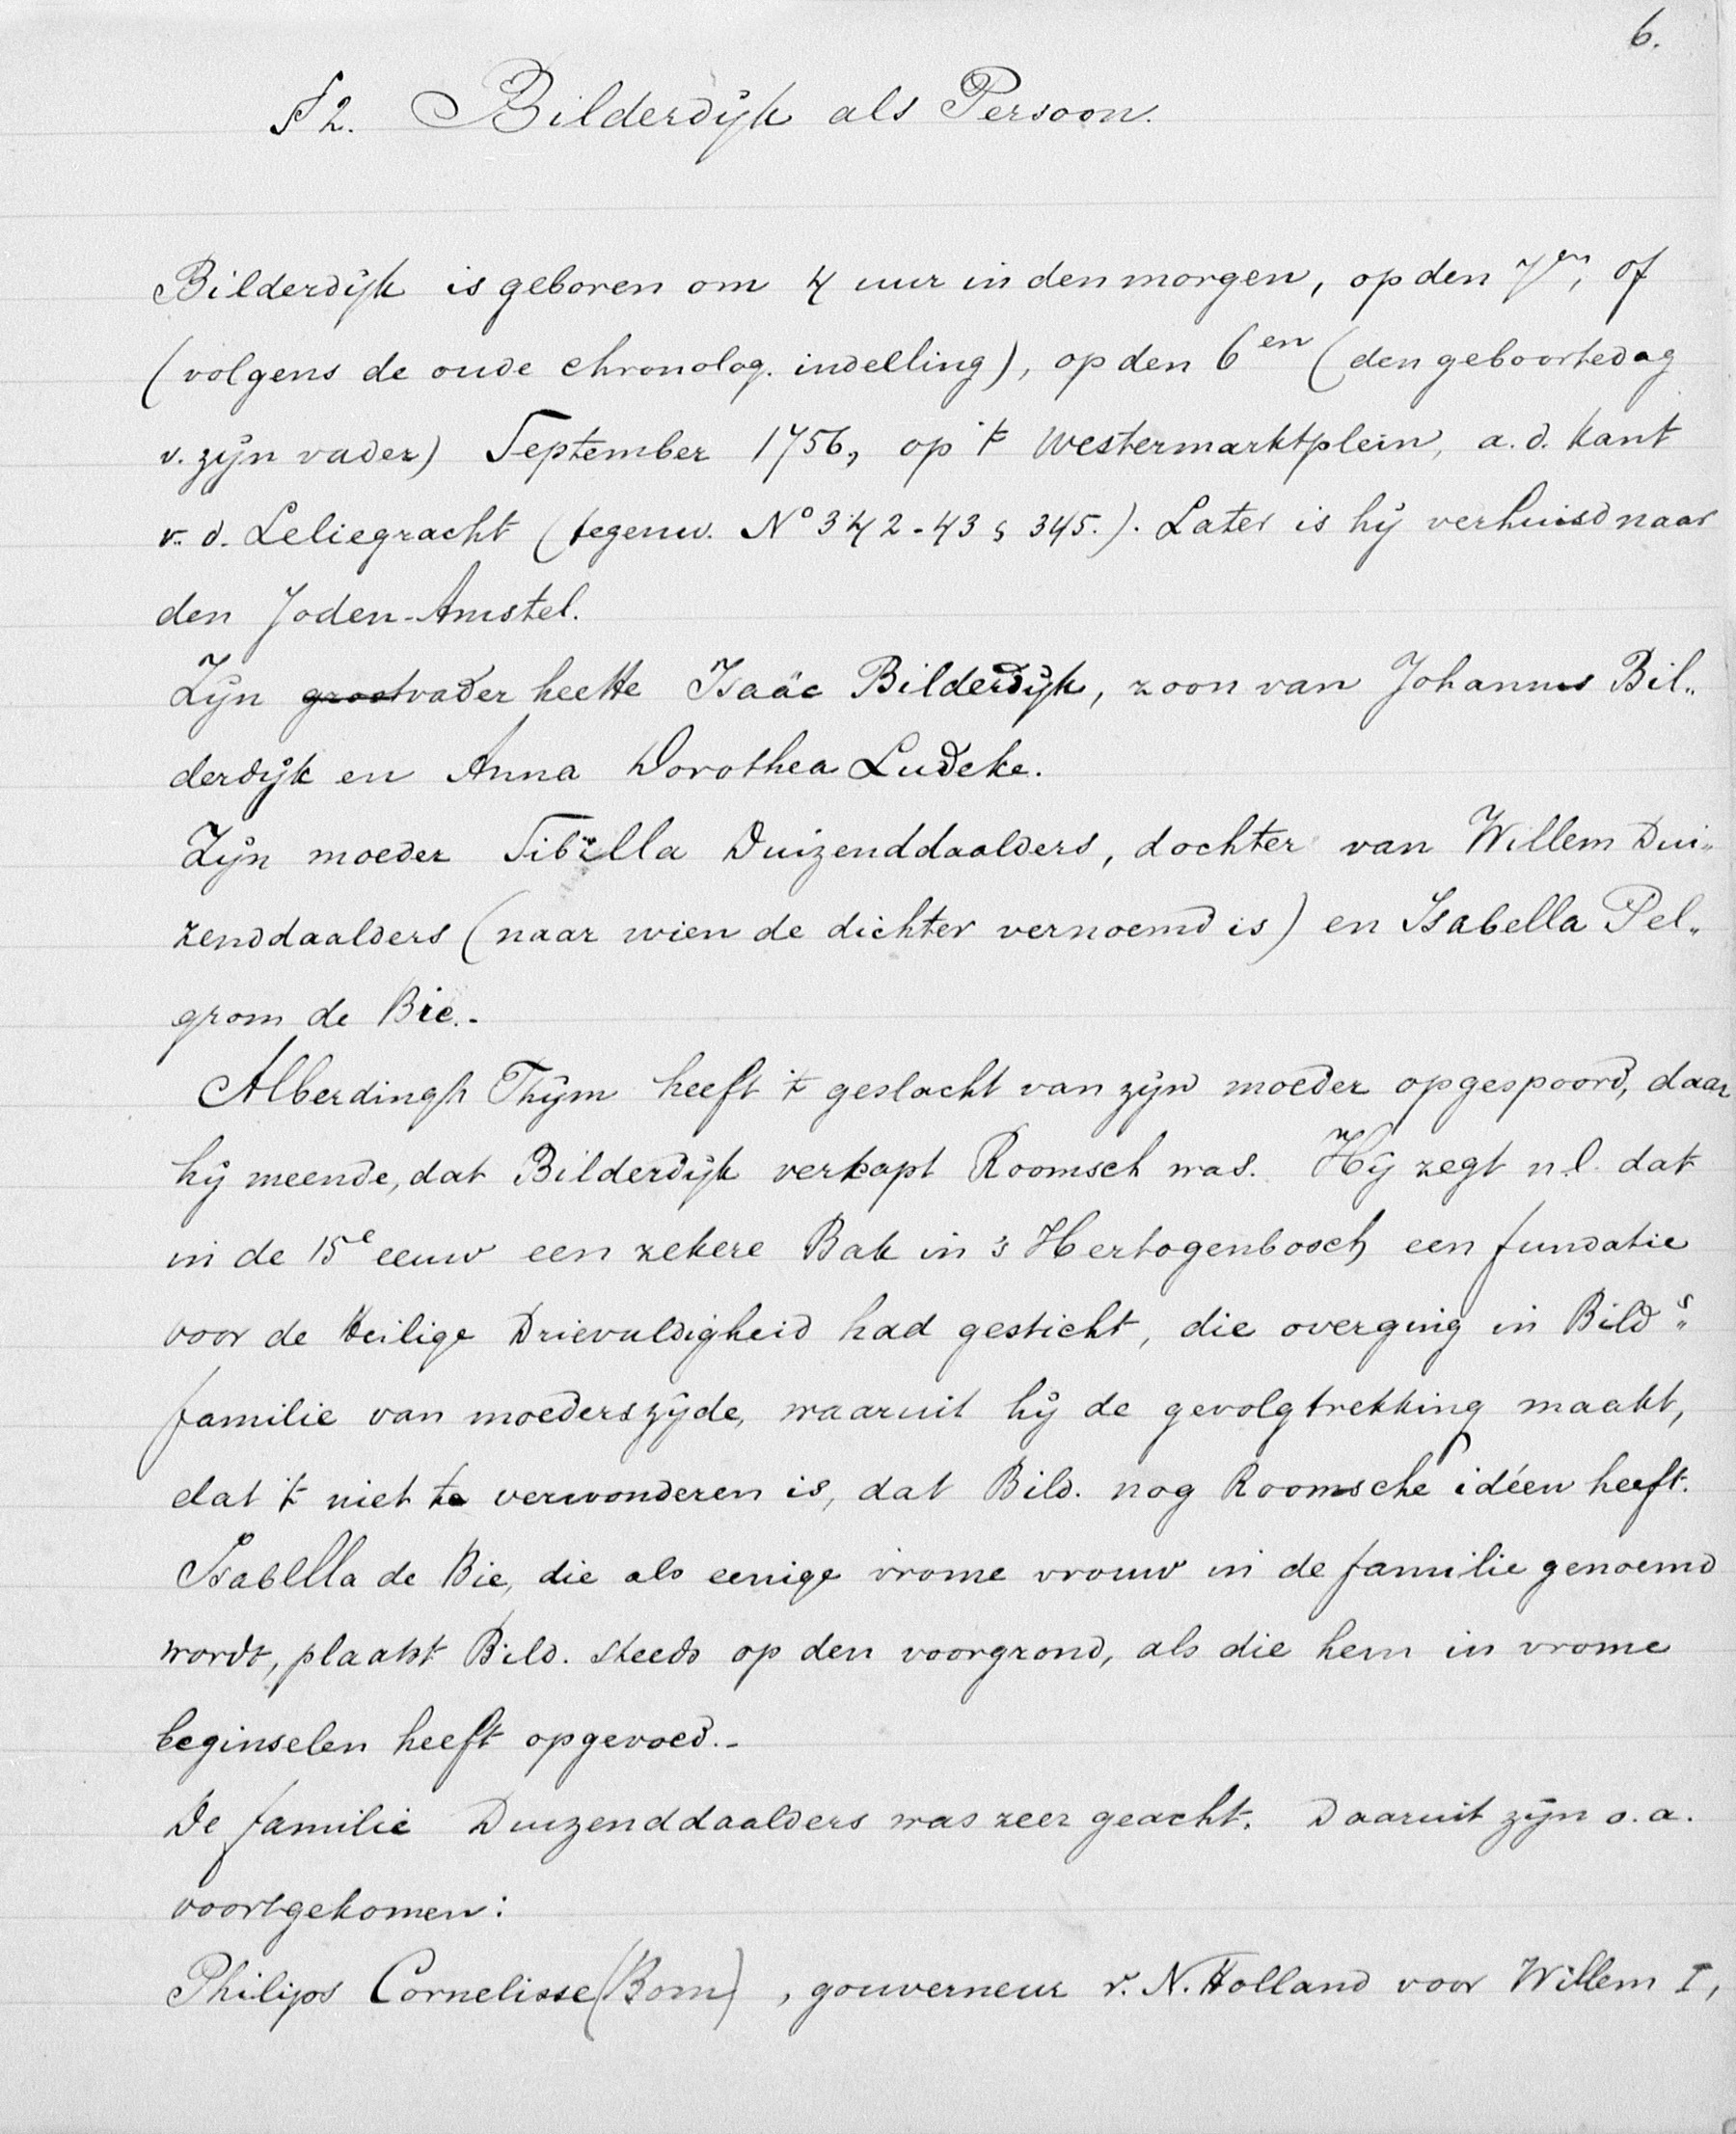 6.
§ 2. Bilderdijk als Persoon.
Bilderdijk is geboren om 4 uur in den morgen, op den 7en, of
(volgens de oude chronolog. indelling), op den 6en (den geboortedag
v. zijn vader) September 1756, op 't Westermarktplein, a.d. kant
v. d. Leliegracht (tegenw. No 342-43 & 345.). Later is hij verhuisd naar
den Joden-Amstel.
Zijn grootvader heette Isaäc Bilderdijk, zoon van Johannes Bil„
derdijk en Anna Dorothea Ludeke.
Zijn moeder Sibilla Duizenddaalders, dochter van Willem Dui„
zenddaalders (naar wien de dichter vernoemd is) en Isabella Pel„
grom de Bie.-
Alberdingh Thijm heeft 't geslacht van zijn moeder opgespoord, daar
hij meende, dat Bilderdijk verkapt Roomsch was. Hij zegt n.l. dat
in de 15e eeuw een zekere Bak in 's Hertogenbosch een fundatie
voor de Heilige Drievuldigheid had gesticht, die overging in Bild„s
familie van moederszijde, waaruit hij de gevolgtrekking maakt,
dat 't niet te verwonderen is, dat Bild. nog Roomsche idéen heeft.
Isabella de Bie, die als eenige vrome vrouw in de familie genoemd
wordt, plaatst Bild. steeds op den voorgrond, als die hem in vrome
beginselen heeft opgevoed.-
De familie Duizenddaalders was zeer geacht. Daaruit zijn o.a.
voortgekomen:
Philips Cornelisse (Bom), gouverneur v. N. Holland voor Willem I,